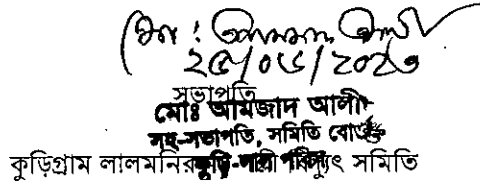 মোঃ আমজাদ আলী
২৫/০৬/২০২৩
সভাপতি
মোঃ আমজাদ আলী
সহ-সভাপতি, সমিতি বোর্ড
কুড়িগ্রাম লালমনিরহাট পল্লী বিদ্যুৎ সমিতি